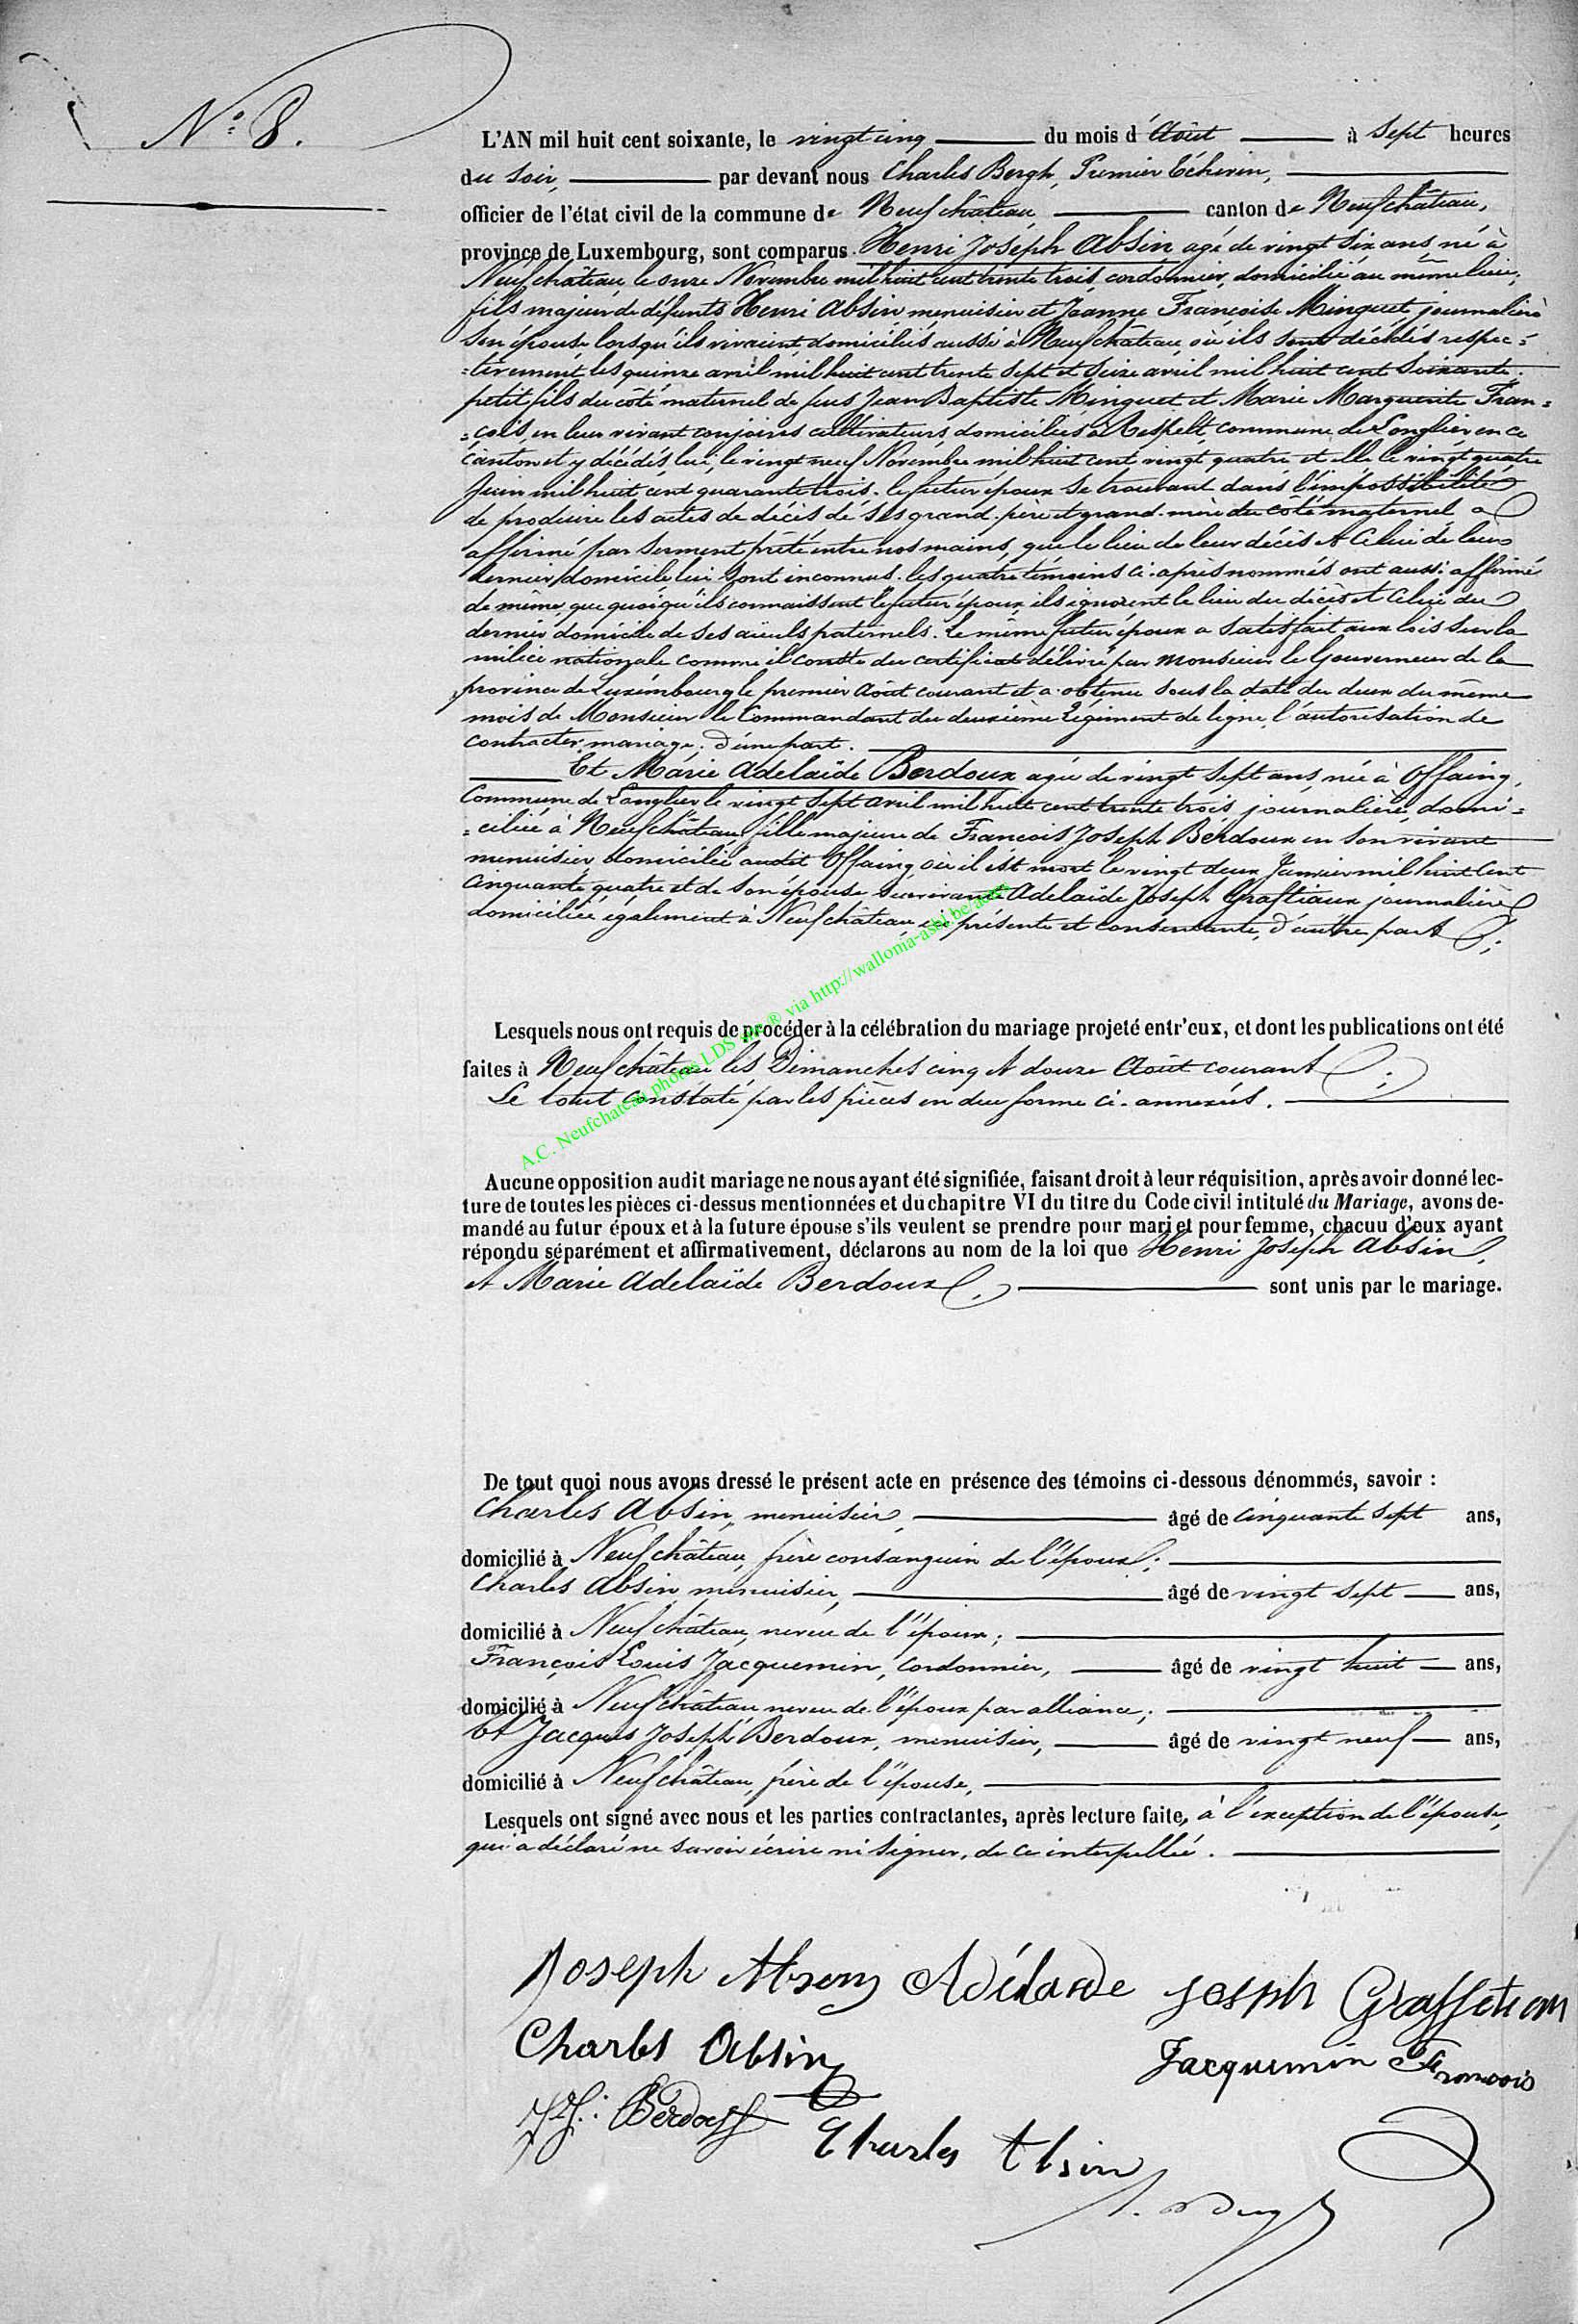 N.° 8.
L'AN mil huit cent soixante, le vingt cinq du mois d'Août à Sept heures
du Soir, par devant nous Charles Bergh, Premier Echevin,
officier de l'état civil de la commune de Neufchâteau canton de Neufchâteau,
province de Luxembourg, sont comparus Henri Joseph Absin agé de vingt six ans né à
Neufchâteau le onze Novembre mil huit cent trente trois, cordonnier, domicilié au même lieu,
fils majeur de défunts Henri Absin menuisier et Jeanne Françoise Minguet, journalière
Son épouse lorsqu'ils vivaient, domiciliés aussi à Neufchâteau, où ils sont décédés respec=
=tivement les quinze avril mil huit cent trente sept et seize avril mil huit cent soixante.
petit fils du côté maternel de feus Jean Baptiste Minguet et Marie Marguerite Fran=
=çois, en leur vivant conjoints cultivateurs domiciliés à Respelt, commune de Longlier en ce
canton et y décédés, lui, le vingt neuf Novembre mil huit cent vingt quatre et elle le vingt quatre
Juin mil huit cent quarante trois. le futur époux se trouvant dans l'impossibilité
de produire les actes de décès de ses grand-père et grand-mère du côté maternel a
affirmé par serment prêté entre nos mains, que le lieu de leur décès et celui de leur
dernier domicile lui sont inconnus. les quatre témoins ci-après nommés ont aussi affirmé
de même, que quoiqu'ils connaissent le futur époux, ils ignorent le lieu du décès et celui du
dernier domicile de ses aïeuls paternels. Le même futur époux a satisfait aux lois sur la
milice nationale comme il conste du certificat délivré par Monsieur le Gouverneur de la
province de Luxembourg le premier Août courant et a obtenu sous la date du deux du même
mois de Monsieur le Commandant du deuxième Régiment de ligne, l'autorisation de
contracter mariage; d'une part.
Et Marie Adelaïde Berdoux agée de vingt sept ans, née à Offaing,
Commune de Longlier le vingt sept avril mil huit cent trente trois, journalière, domi=
=ciliée à Neufchâteau, fille majeure de François Joseph Berdoux en son vivant
menuisier domicilié audit Offaing où il est mort le vingt deux Janvier mil huit cent
cinquante quatre et de son épouse survivante Adelaïde Joseph Graftiaux journalière
domiciliée également à Neufchâteau, ici présente et consentante, d'autre part;
Lesquels nous ont requis de procéder à la célébration du mariage projeté entr'eux, et dont les publications ont été
faites à Neufchâteau les Dimanches cinq et douze Août courant;
Le tout constaté par les pièces en due forme ci-annexées.
A.C. Neufchateau photos LDS via http://wallonia-asbl.be/actes
Aucune opposition audit mariage ne nous ayant été signifiée, faisant droit à leur réquisition, après avoir donné lec-
ture de toutes les pièces ci-dessus mentionnées et du chapitre VI du titre du Code civil intitulé du Mariage, avons de-
mandé au futur époux et à la future épouse s'ils veulent se prendre pour mari et pour femme, chacuu d'eux ayant
répondu séparément et affirmativement, déclarons au nom de la loi que Henri Joseph Absin
et Marie Adelaïde Berdoux, sont unis par le mariage.
De tout quoi nous avons dressé le présent acte en présence des témoins ci-dessous dénommés, savoir :
Charles Absin, menuisier, âgé de cinquante sept ans,
domicilié à Neufchâteau, frère consanguin de l'époux;
Charles Absin menuisier, âgé de vingt sept ans,
domicilié à Neufchâteau, neveu de l'époux;
François Louis Jacquemin, cordonnier, âgé de vingt huit ans,
domicilié à Neufchâteau neveu de l'époux par alliance;
Et Jacques Joseph Berdoux, menuisier, âgé de vingt neuf ans,
domicilié à Neufchâteau, frère de l'épouse,
Lesquels ont signé avec nous et les parties contractantes, après lecture faite, à l'exception de l'épouse,
qui a déclaré ne savoir écrire ni signer, de ce interpellée.
Joseph Absin Adélaïde joseph Graffetiaux
Charles Absin Jacquemin François
J.J.: Berdoux Charles Absin